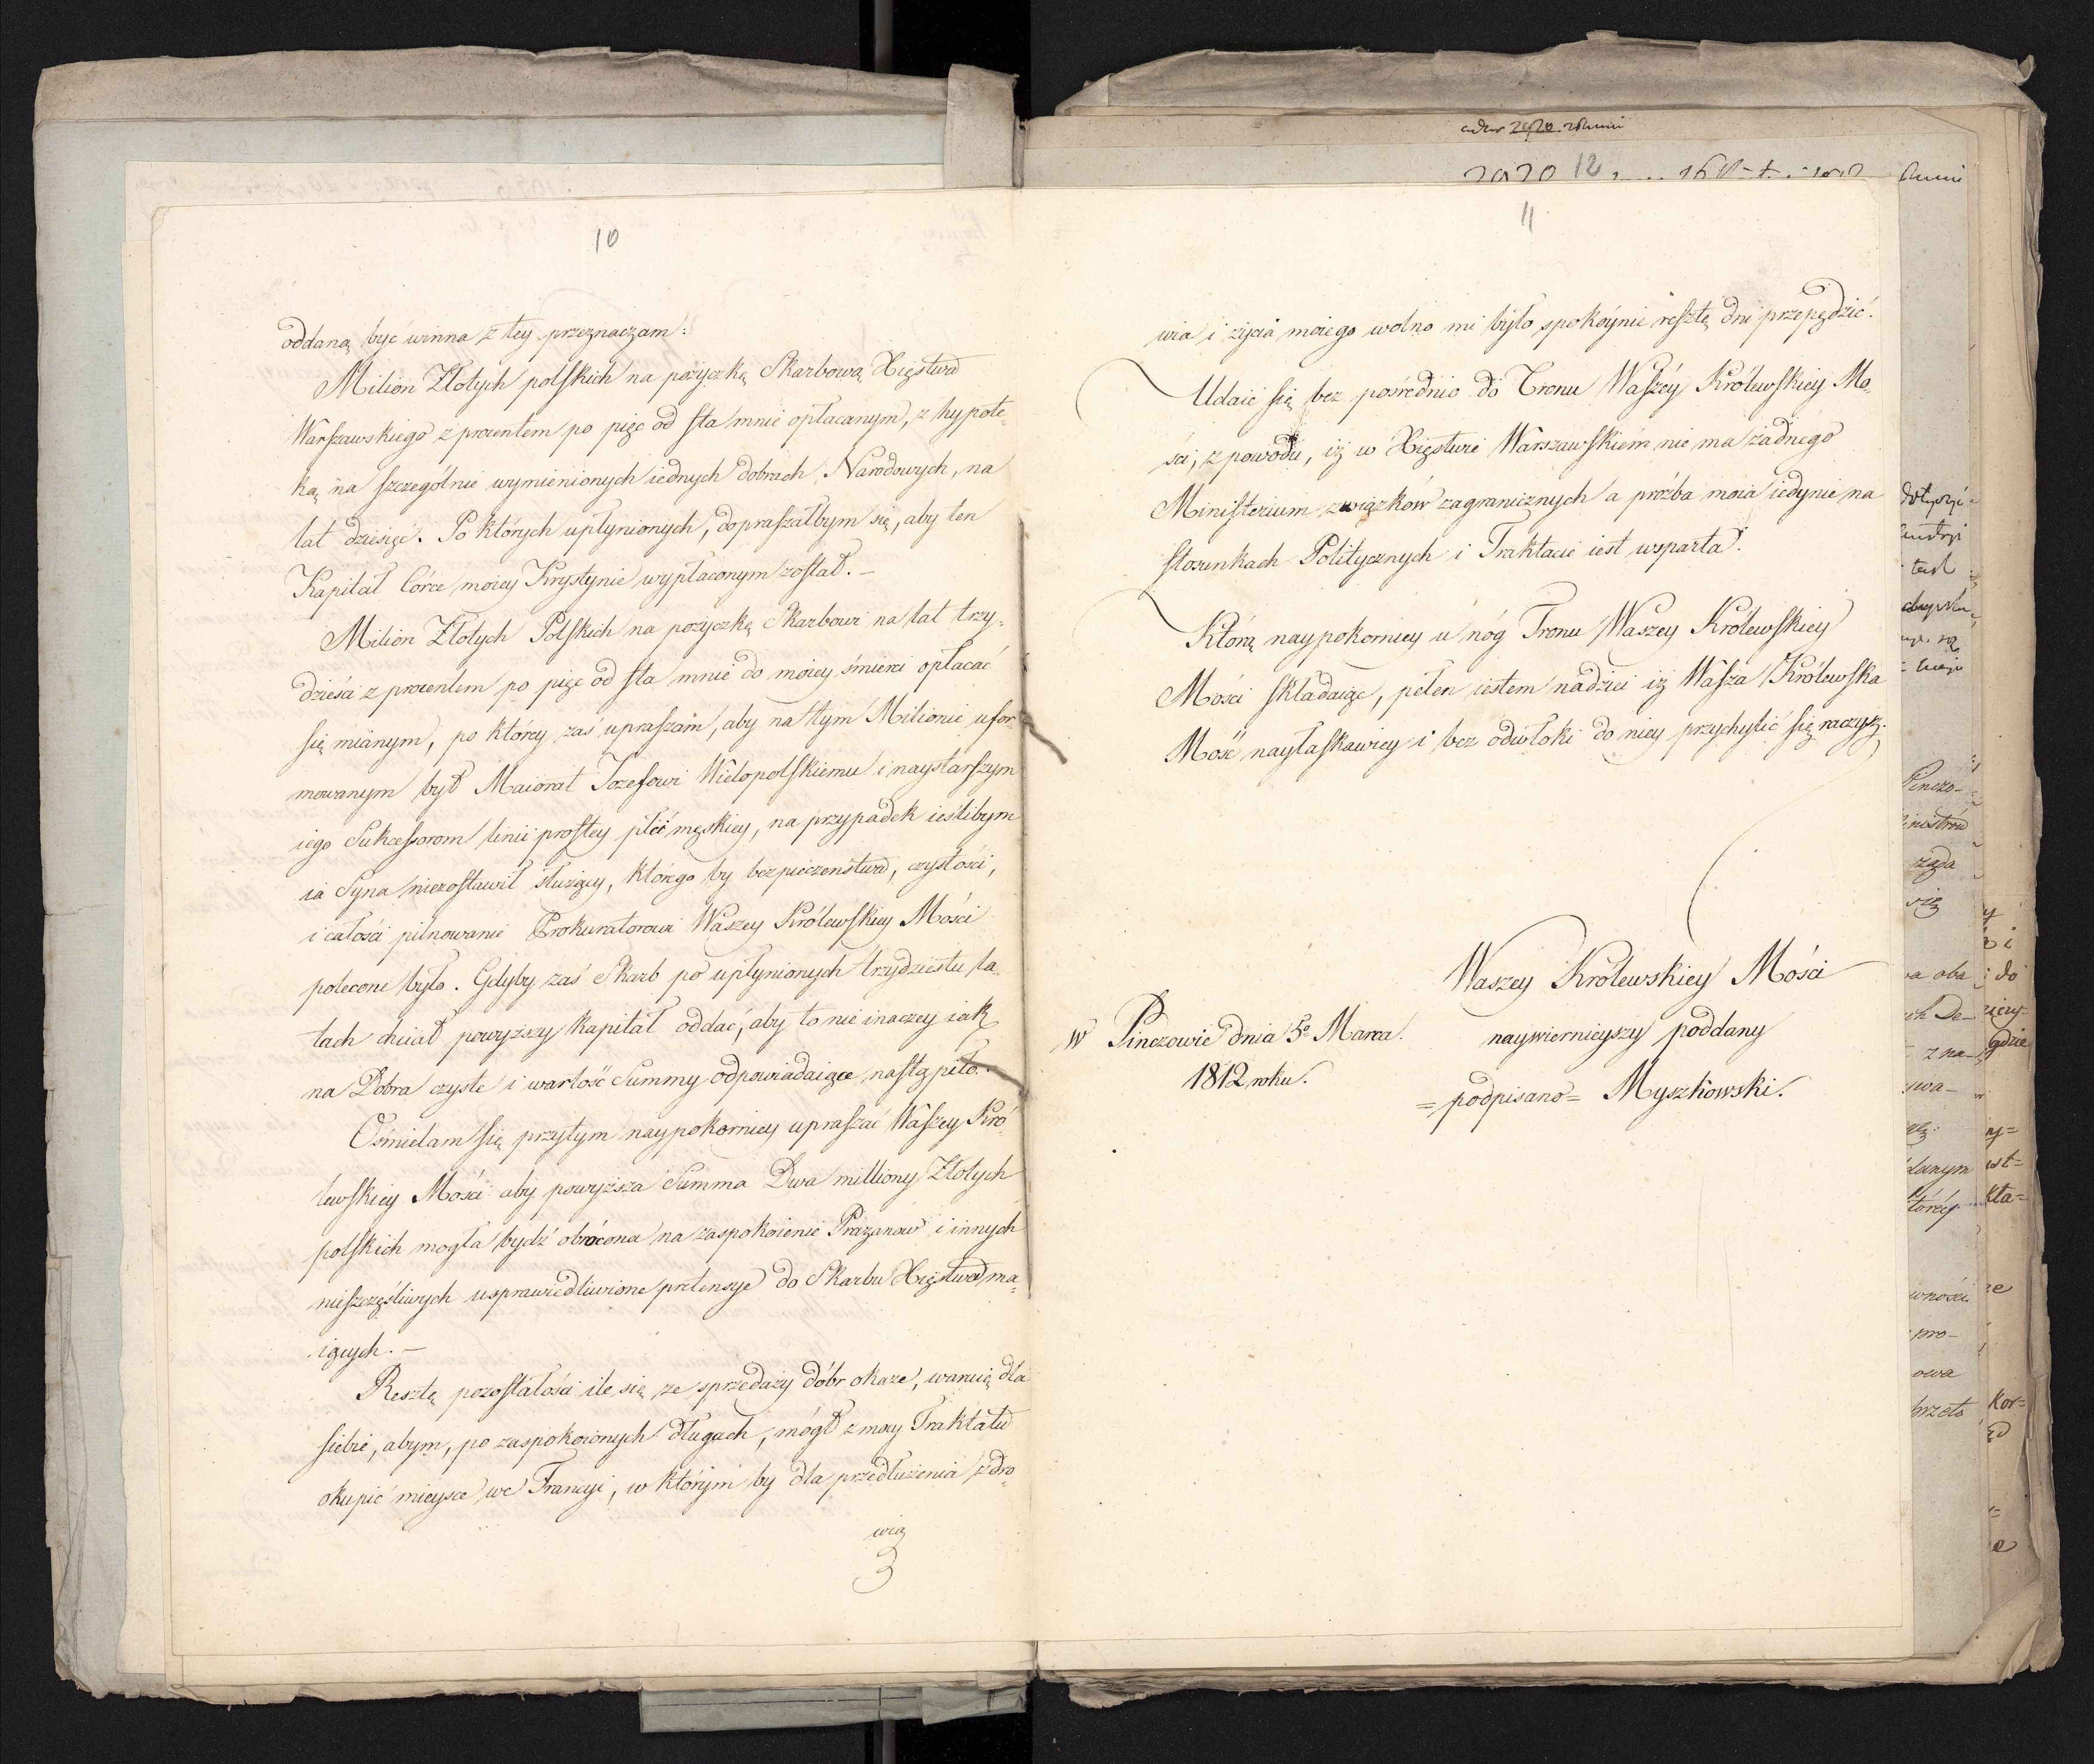 10
oddaną być winna z tey przeznaczam:
Milion Złotych polskich na pożyczkę Skarbową Xięstwa
Warszawskiego z procentem po pięć od sta mnie opłacanym, z hypote-
ką na szczególnie wymienionych iednych dobrach Narodowych, na
lat dziesięć. Po których upłynionych, dopraszałbym się, aby ten
Kapitał Córce moiey Krystynie wypłaconym został. —
Milion Złotych Polskich na pożyczkę Skarbowi na lat trzy-
dzieści z procentem po pięć od sta mnie do moiey śmierci opłacać
się mianym, po którey zaś upraszam, aby na tym Milionie ufor-
mowanym był Maiorat Jozefowi Wielopolskiemu i naystarszym
iego Sukcessorom linii prostey płci męskiey, na przypadek ieślibym
ia Syna niezostawił służący, którego by bezpieczeństwa, czystości,
i całości pilnowanie Prokuratorowi Waszey Królewskiey Mości
polecone było. Gdyby zaś Skarb po upłynionych trzydziestu la-
tach chciał powyższy kapitał oddać, aby to nie inaczey iak
na Dobra czyste i wartość Summy odpowiadaiące nastąpiło.
Ośmielam się przytym naypokorniey upraszać Waszey Kró-
lewskiey Mości aby powyższa Summa Dwa milliony Złotych
polskich mogła bydź obrócona na zaspokoienie Prażanów i innych
nieszczęśliwych usprawiedliwione pretensye do Skarbu Xięstwa ma-
iących. —
Resztę pozostałości ile się ze sprzedaży dóbr okaże, waruię dla
siebie, abym, po zaspokoionych długach, mógł z mocy Traktatu
okupić mieysce we Francyi, w którym by dla przedłużenia zdro-
wia
11
wia i życia moiego wolno mi było spokoynie resztę dni przepędzić.
Udaię się bez pośrednio do Tronu Waszéy Królewskiey Mo-
ści, z powodu, iż w Xięstwie Warszawskiém nie ma żadnego
Ministerium związków zagranicznych a prózba moia iedynie na
stosunkach Politycznych i Traktacie iest wsparta.
Którą naypokorniey u nóg Tronu Waszey Królewskiey
Mości składaiąc, pełen iestem nadziei iż Wasza Królewska
Mość nayłaskawiey i bez odwłoki do niey przychylić się raczysz.
Waszey Królewskiey Mości
naywiernieyszy poddany
= podpisano = Myszkowski.
w Pinczowie dnia 5º Marca.
1812 roku.
12